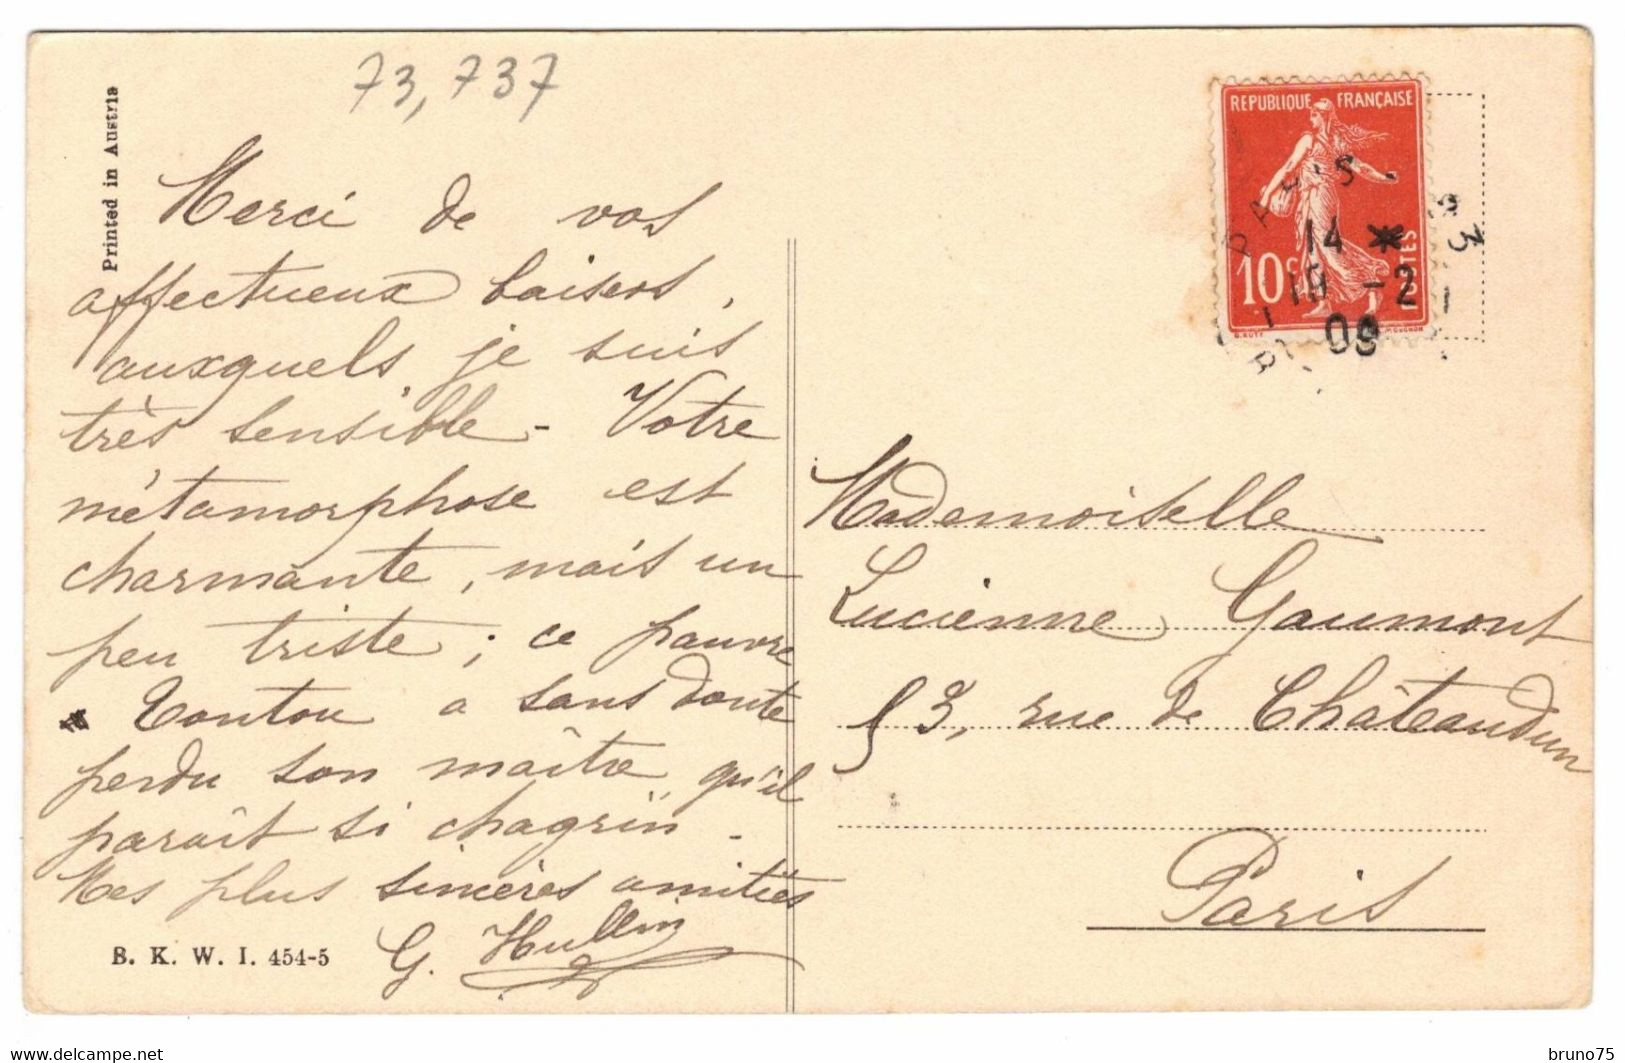 73,737
Printed in Austria
Merci de vos
affectueux baisers,
auxquels je suis
très sensible - Votre
métamorphose est
charmante, mais un
peu triste ; ce pauvre
Toutou a sans doute
perdu son maître, qu'il
paraît si chagrin -
Mes plus sincères amitiés
G. Hullin
B. K. W. I. 454-5
REPUBLIQUE FRANÇAISE
10c POSTES
PARIS
14 *
-2
09
Mademoiselle
Lucienne Gaumont
53, rue de Châteaudun
Paris
delcampe.net
bruno75